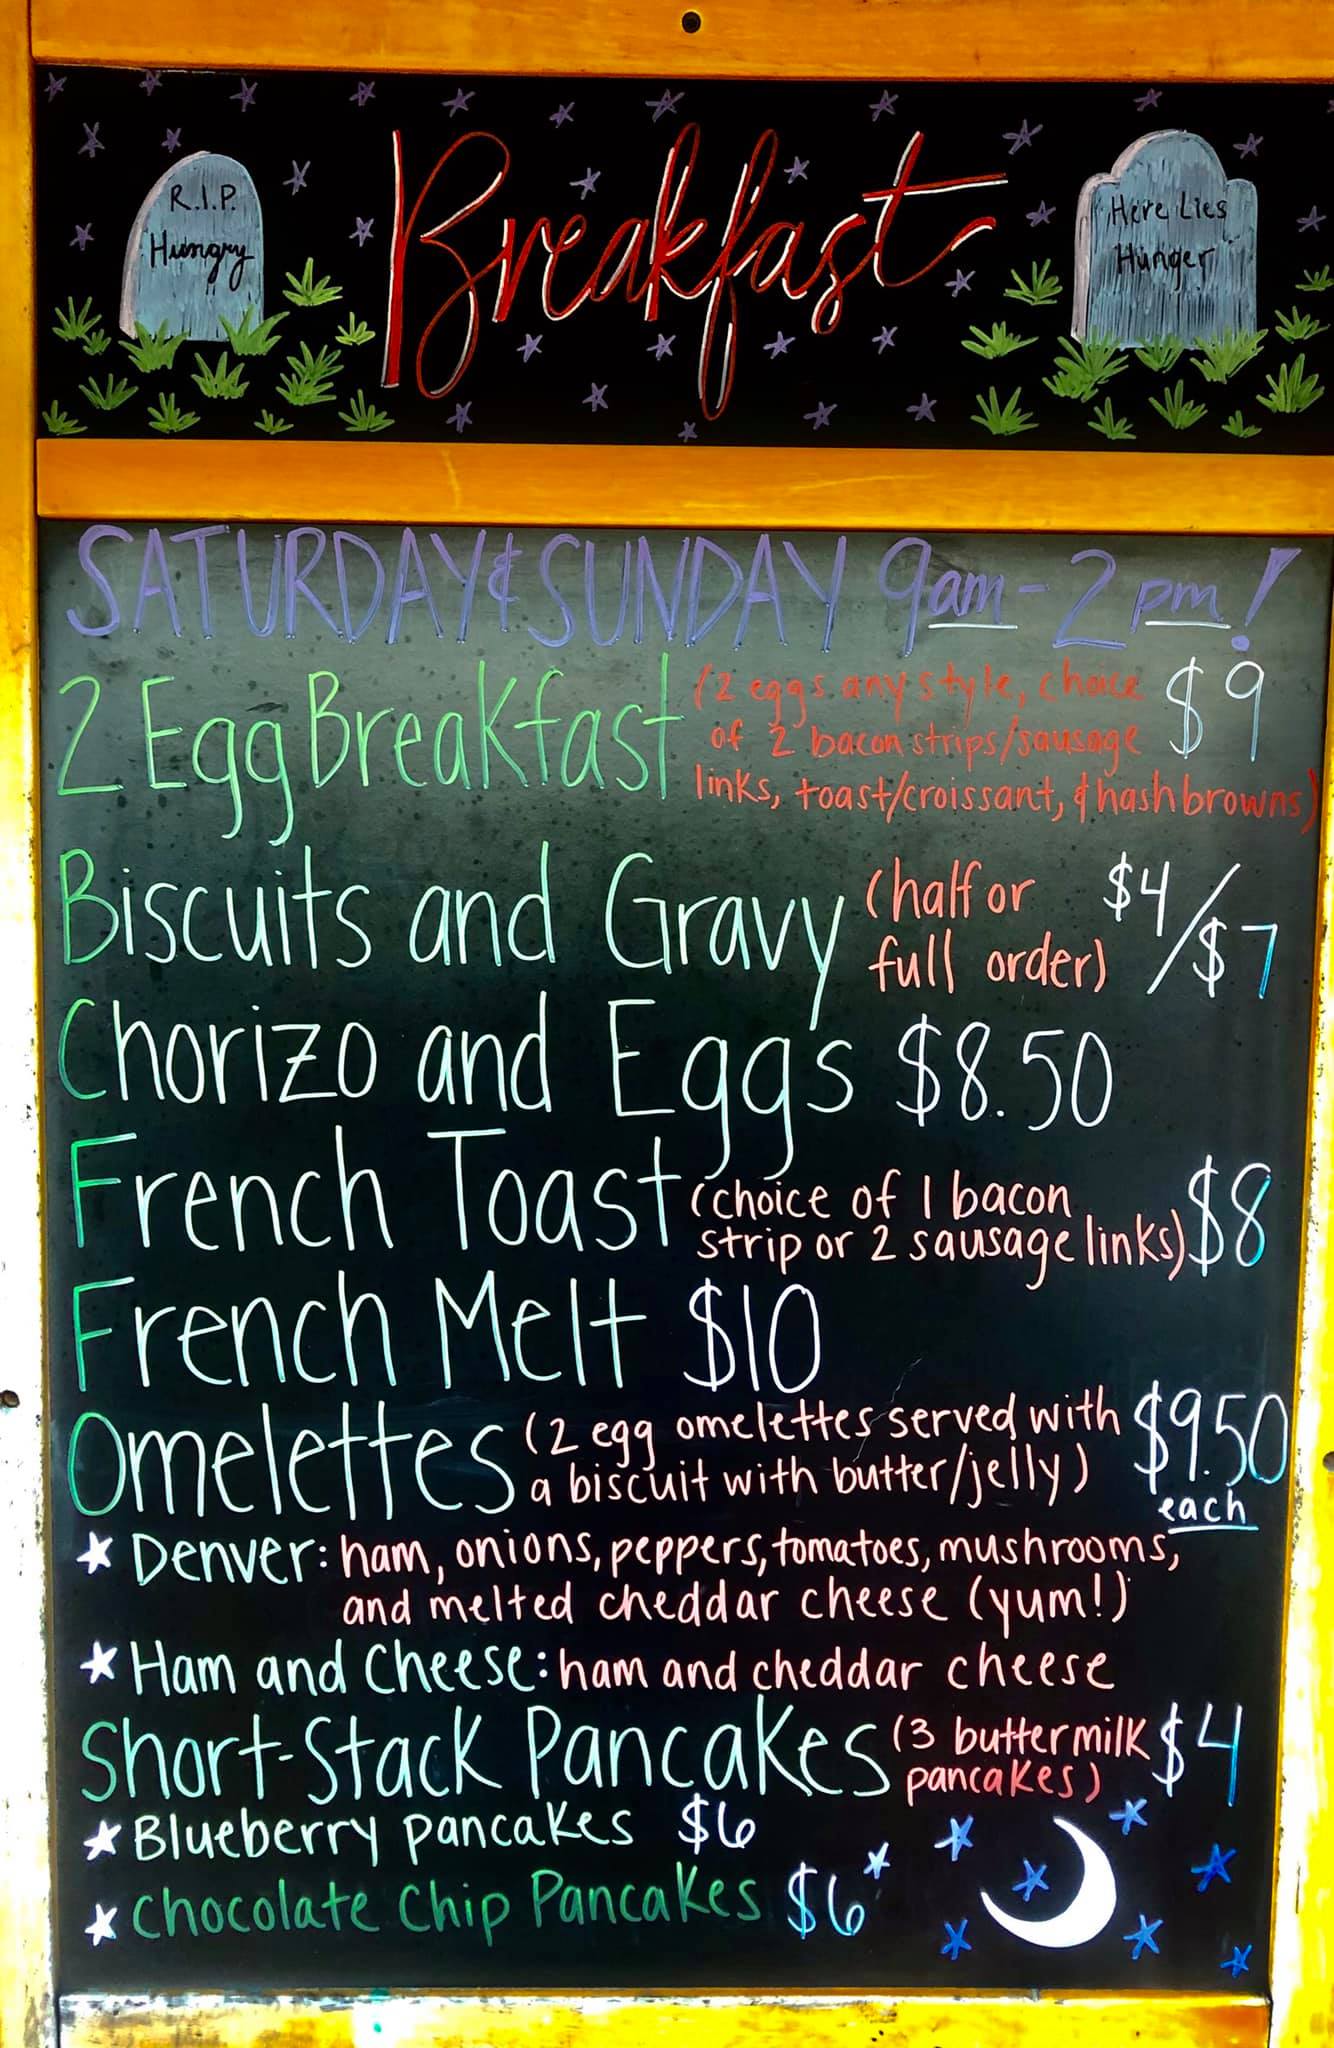 R.I.P.
Hungry
Breakfast
Here Lies
Hunger
SATURDAY & SUNDAY 9am - 2pm!
2 Egg Breakfast (2 eggs any style, choice $9
of 2 bacon strips/sausage
links, toast/croissant, & hashbrowns)
Biscuits and Gravy (half or $4/$7
full order)
Chorizo and Eggs $8.50
French Toast (choice of 1 bacon $8
strip or 2 sausage links)
French Melt $10
Omelettes (2 egg omelettes served with $9.50
a biscuit with butter/jelly) each
Denver: ham, onions, peppers, tomatoes, mushrooms,
and melted cheddar cheese (yum!)
Ham and Cheese: ham and cheddar cheese
Short-Stack Pancakes (3 buttermilk $4
pancakes)
Blueberry pancakes $6
Chocolate Chip Pancakes $6